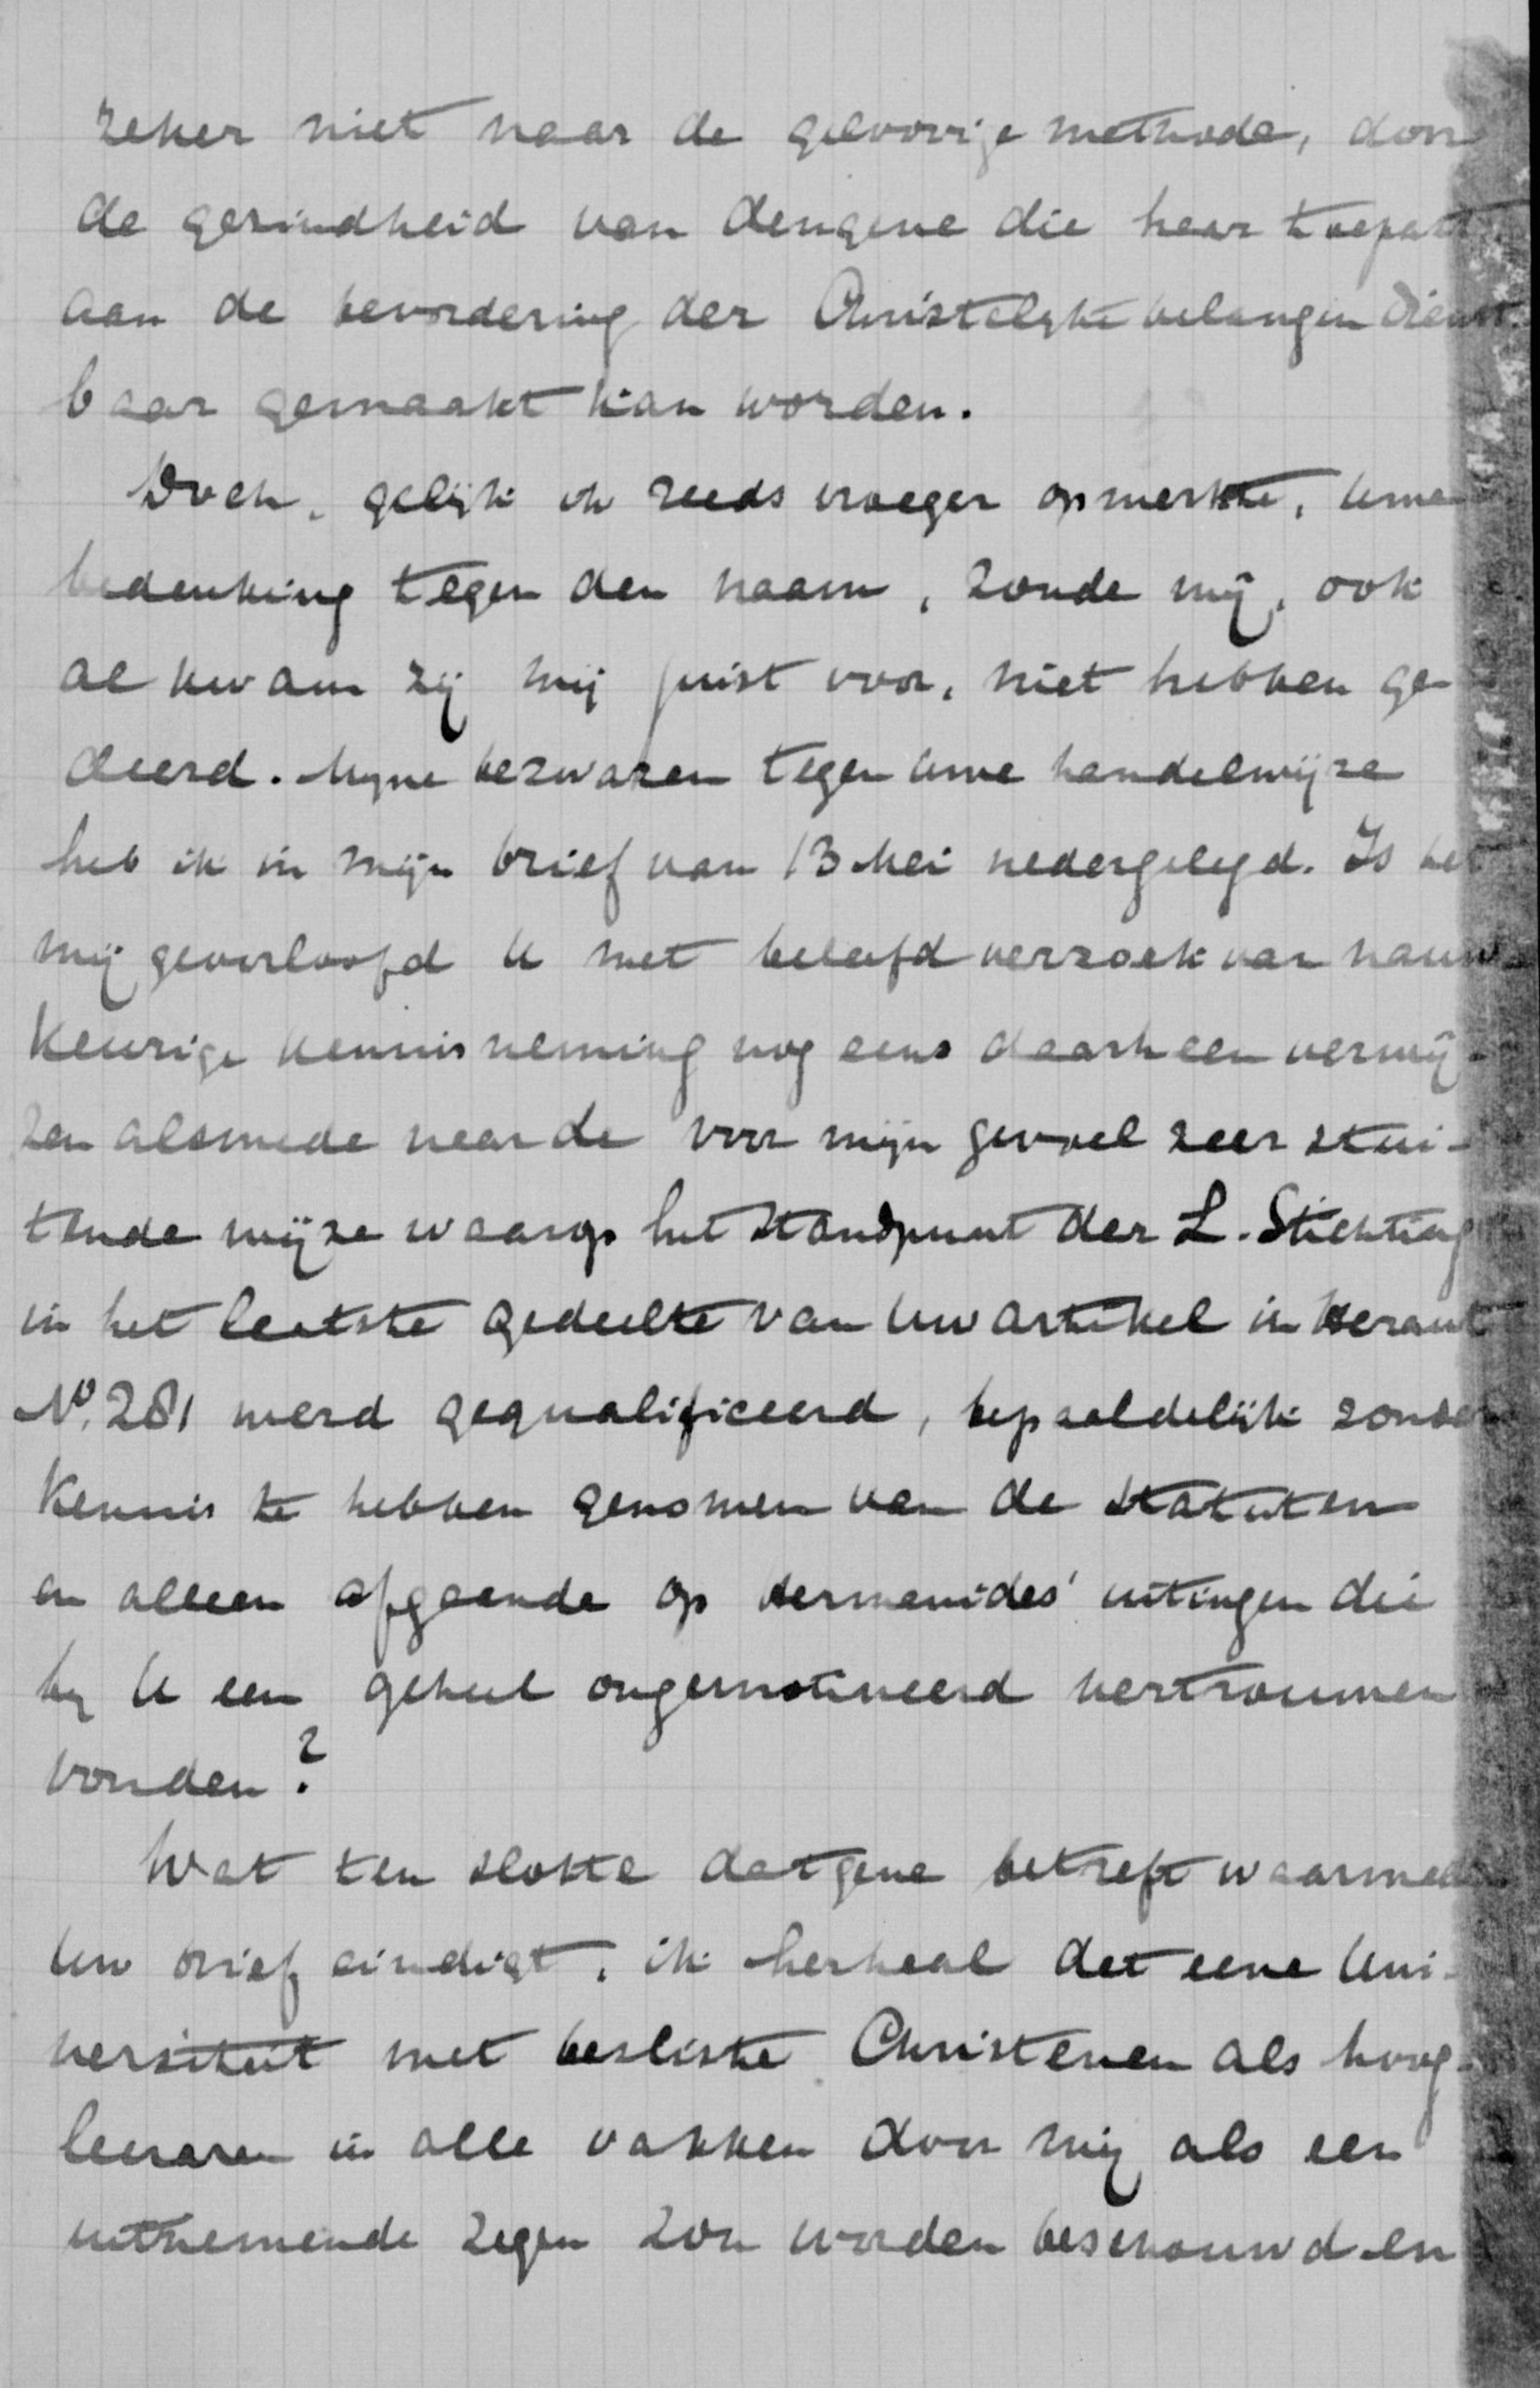 zeker niet naar de gevorige methode, door
de gezindheid van dengene die haar toepast
aan de bevordering der Christelyke belangen dienst
baar gemaakt kan worden.
Doch, gelijk ik reeds vroeger opmerkte, Uwe
bedenking tegen den naam, zoude mij, ook
al kwam zij mij juist voor, niet hebben ge-
deerd. Myne bezwaren tegen Uwe handelwijze
heb ik in mijn brief van 13 Mei nedergelegd. Is het
mij geoorloofd U met beleefd verzoek van nauw-
keurige kennisneming nog eens daarheen verwij-
zen alsmede naar de voor mijn gevoel zeer stui-
tende wijze waarop het standpunt der L. Stichting
in het laatste gedeelte van Uw artikel in Heraut
No. 281 werd gequalificeerd, bepaaldelijk zonder
kennis te hebben genomen van de statuten
en alleen afgaande op Hermanides' uitingen die
by U een geheel ongemotiveerd vertrouwen
vonden?
Wat ten slotte datgene betreft waarmede
Uw brief eindigt, ik herhaal dat eene Uni-
versiteit met besliste Christenen als hoog-
leeraren in alle vakken door mij als een
uitnemende zegen zou worden beschouwd en